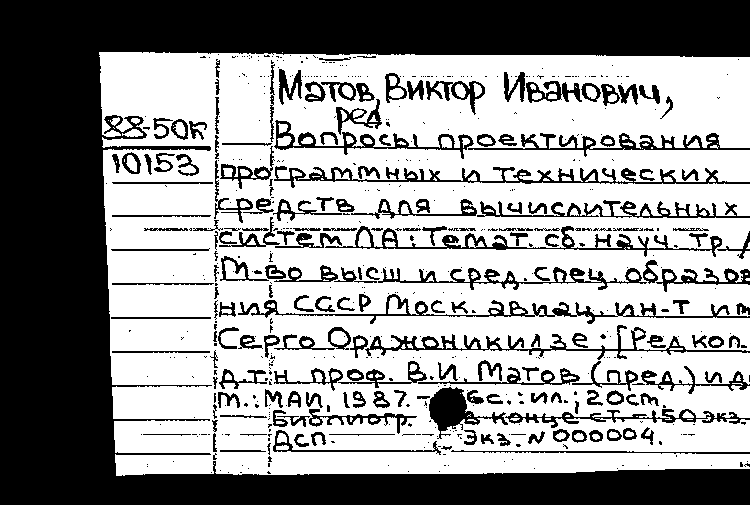 Матов, Виктор Иванович,
ред.
88-50к
10153
Вопросы проектирования
программных и технических
средств для вычислительных
систем ЛА: Темат. сб. науч. тр. /
М-во высш и сред. спец. образов
ния СССР, Моск. авиац. ин-т им
Серго Орджоникидзе; [Редкол.
д.т.н проф. В.И. Матов (пред.) и д
М.: МАИ, 1987. - 6с.: ил.; 20см.
Библиогр. в конце ст. - 150 экз.
Дсп. Экз. N 000004.